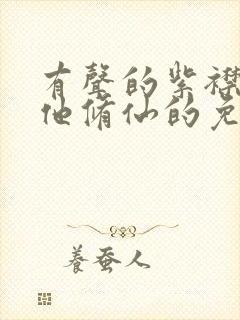 有聲的紫襟
他脩仙的免
養蚕人